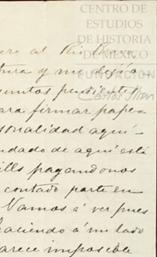 CENTRO DE
ESTUDIOS
DE HISTORIA
DE MEXICO
Carlos Slim
ero al
tura y me deja
suntos pendientes
ara firmar pape
sonalidad aquí
ndado de aquí está
ills pagandonos
contado parte en
Vamos á ver pues
haciendo á un lado
arece imposible